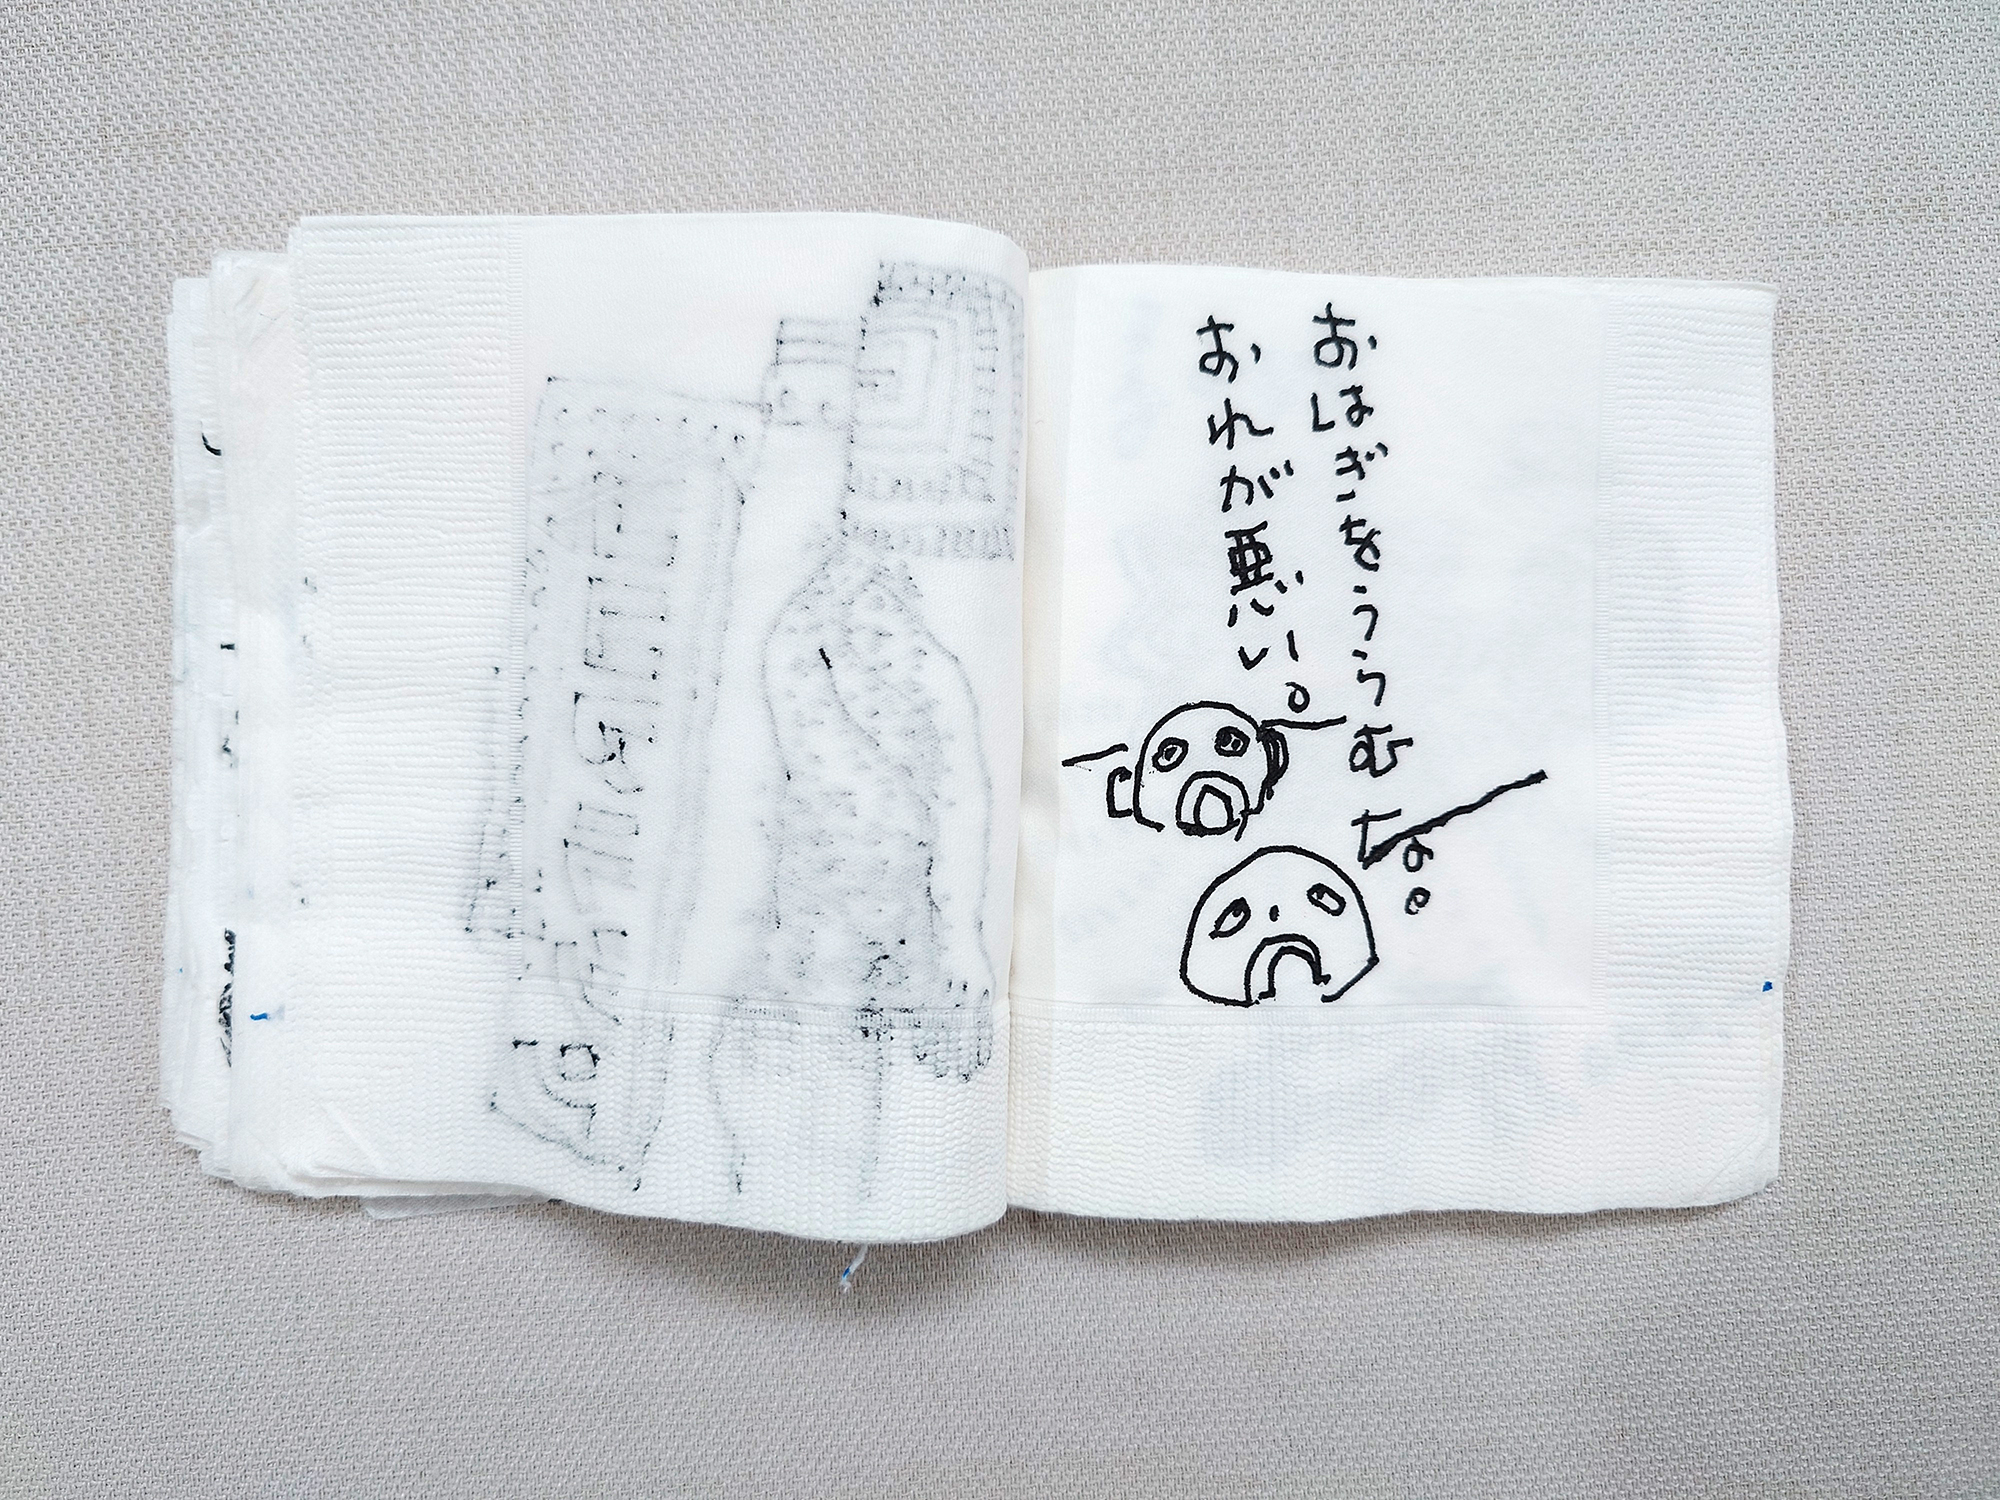 おはぎをうらむな。
おれが悪い。